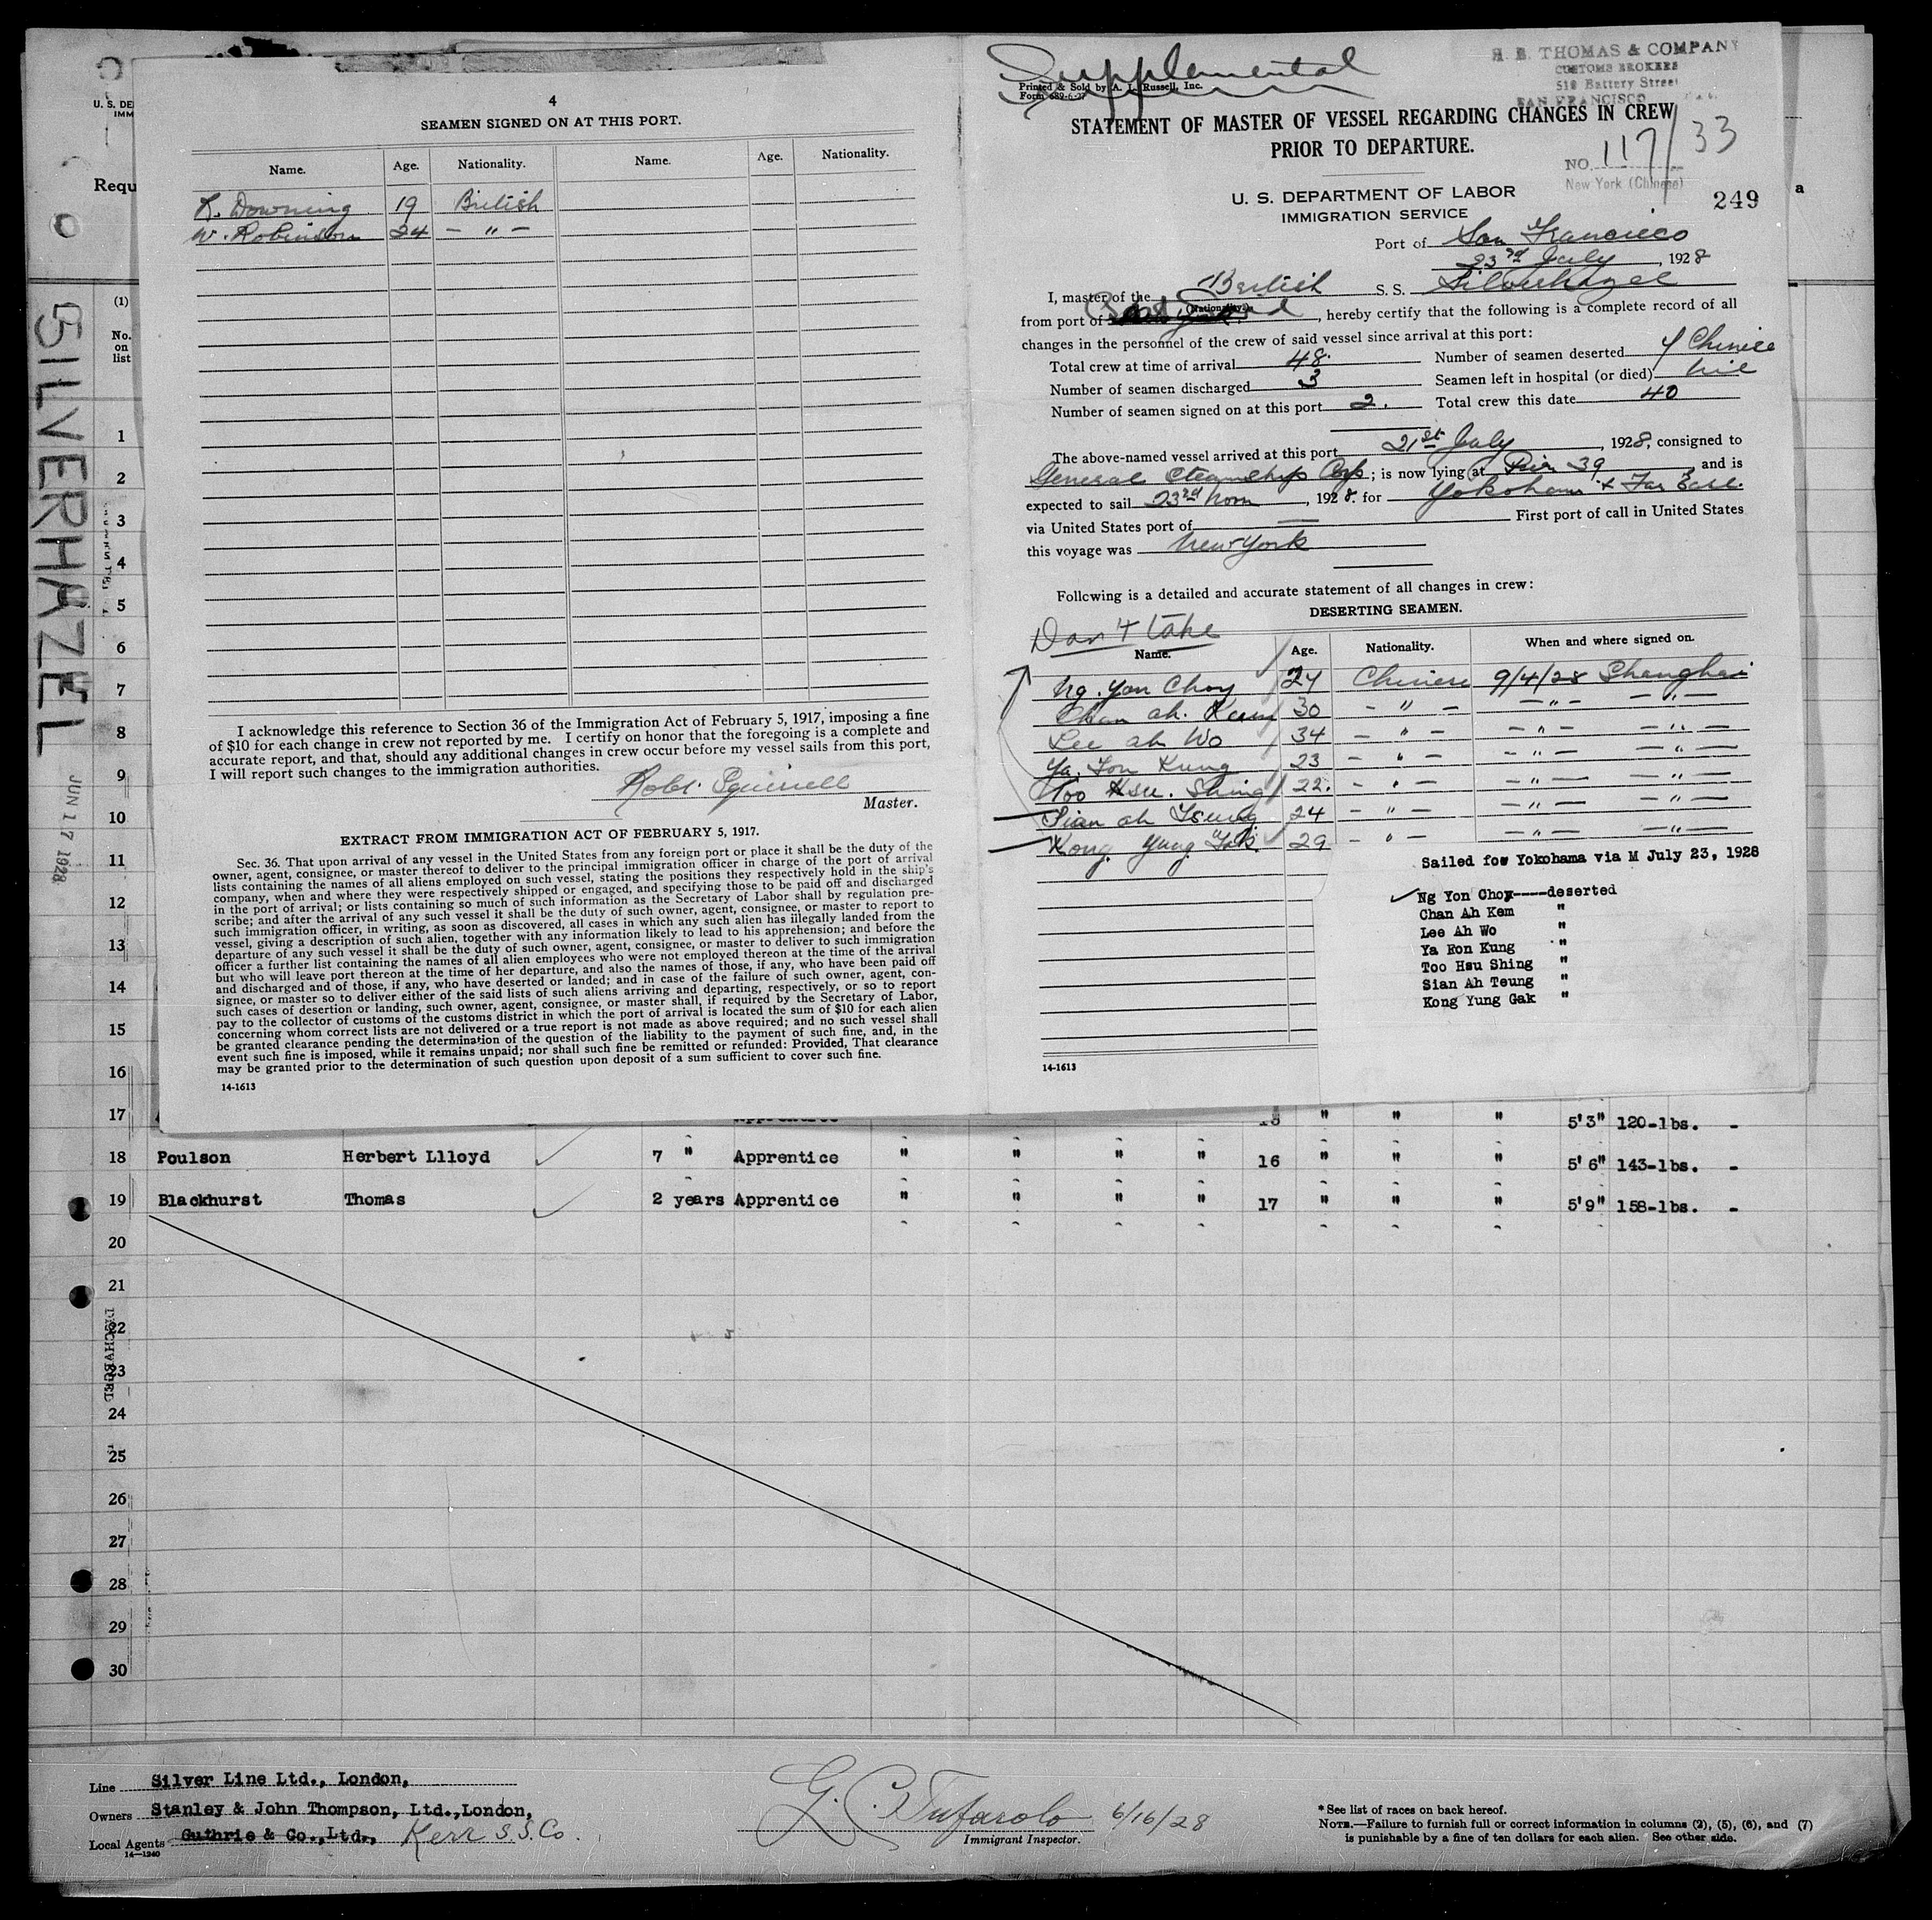 4
SEAMEN SIGNED ON AT THIS PORT.
Name. Age. Nationality. Name. Age. Nationality.
Downing 19 British
W. Robinson 24 — " —
I acknowledge this reference to Section 36 of the Immigration Act of February 5, 1917, imposing a fine
of $10 for each change in crew not reported by me. I certify on honor that the foregoing is a complete and
accurate report, and that, should any additional changes in crew occur before my vessel sails from this port,
I will report such changes to the immigration authorities.
Robt. Squirrell
Master.
EXTRACT FROM IMMIGRATION ACT OF FEBRUARY 5, 1917.
Sec. 36. That upon arrival of any vessel in the United States from any foreign port or place it shall be the duty of the
owner, agent, consignee, or master thereof to deliver to the principal immigration officer in charge of the port of arrival
lists containing the names of all aliens employed on such vessel, stating the positions they respectively hold in the ship's
company, when and where they were respectively shipped or engaged, and specifying those to be paid off and discharged
in the port of arrival; or lists containing so much of such information as the Secretary of Labor shall by regulation pre-
scribe; and after the arrival of any such vessel it shall be the duty of such owner, agent, consignee, or master to report to
such immigration officer, in writing, as soon as discovered, all cases in which any such alien has illegally landed from the
vessel, giving a description of such alien, together with any information likely to lead to his apprehension; and before the
departure of any such vessel it shall be the duty of such owner, agent, consignee, or master to deliver to such immigration
officer a further list containing the names of all alien employees who were not employed thereon at the time of the arrival
but who will leave port thereon at the time of her departure, and also the names of those, if any, who have been paid off
and discharged and of those, if any, who have deserted or landed; and in case of the failure of such owner, agent, con-
signee, or master so to deliver either of the said lists of such aliens arriving and departing, respectively, or so to report
such cases of desertion or landing, such owner, agent, consignee, or master shall, if required by the Secretary of Labor,
pay to the collector of customs of the customs district in which the port of arrival is located the sum of $10 for each alien
concerning whom correct lists are not delivered or a true report is not made as above required; and no such vessel shall
be granted clearance pending the determination of the question of the liability to the payment of such fine, and, in the
event such fine is imposed, while it remains unpaid; nor shall such fine be remitted or refunded: Provided, That clearance
may be granted prior to the determination of such question upon deposit of a sum sufficient to cover such fine.
14-1613
Supplemental
Printed & Sold by A. J. Russell, Inc.
Form 689-6-27
H. B. THOMAS & COMPANY
CUSTOMS BROKERS
510 Battery Street
SAN FRANCISCO
STATEMENT OF MASTER OF VESSEL REGARDING CHANGES IN CREW
PRIOR TO DEPARTURE.
NO. 117/33
New York (Chinese)
U. S. DEPARTMENT OF LABOR
IMMIGRATION SERVICE
249
Port of San Francisco
23rd July, 1928
I, master of the British S. S. Silverhazel
(Nationality)
from port of , hereby certify that the following is a complete record of all
changes in the personnel of the crew of said vessel since arrival at this port:
Total crew at time of arrival 48. Number of seamen deserted 7 Chinese
Number of seamen discharged 3 Seamen left in hospital (or died) nil
Number of seamen signed on at this port 2. Total crew this date 40
The above-named vessel arrived at this port 21st July, 1928, consigned to
General Steamship Corp; is now lying at Pier 39, and is
expected to sail 23rd noon, 1928. for Yokohama & Far East.
via United States port of — First port of call in United States
this voyage was New York
Following is a detailed and accurate statement of all changes in crew:
DESERTING SEAMEN.
Don't take
Name. Age. Nationality. When and where signed on.
Ng. Yon Choy 24 Chinese 9/4/28 Shanghai
Chan ah. Kem 30 — " — — " — — " —
Lee ah Wo 34 — " — — " — — " —
Ya. Ron Kung 23 — " — — " — — " —
Too Hsu. Shing 22. — " — — " — — " —
Sian ah Tseung 24 — " — — " — — " —
Kong Yung Gak 29 — " — — " — — " —
Sailed for Yokohama via M July 23, 1928
Ng Yon Choy----deserted
Chan Ah Kem "
Lee Ah Wo "
Ya Ron Kung "
Too Hsu Shing "
Sian Ah Teung "
Kong Yung Gak "
14-1613
U. S. DE
IMM
Requ
a
(1)
No.
on
list
SILVERHAZEL
JUN 17 1928
1
2
3
4
5
6
7
8
9
10
11
12
13
14
15
16
17 Apprentice " " " 5'3" 120-lbs. -
18 Poulson Herbert Llloyd 7 " Apprentice " " " " 16 " " " 5'6" 143-lbs. -
19 Blackhurst Thomas 2 years Apprentice " " " " 17 " " " 5'9" 158-lbs. -
20
21
22
23
DISCHARGED
24
25
26
27
28
29
30
Line Silver Line Ltd., London,
Owners Stanley & John Thompson, Ltd.,London,
Local Agents Guthrie & Co.,Ltd., Kerr S.S. Co.
14—1240
G. C. Tufarolo 6/16/28
Immigrant Inspector.
* See list of races on back hereof.
NOTE.—Failure to furnish full or correct information in columns (2), (5), (6), and (7)
is punishable by a fine of ten dollars for each alien. See other side.